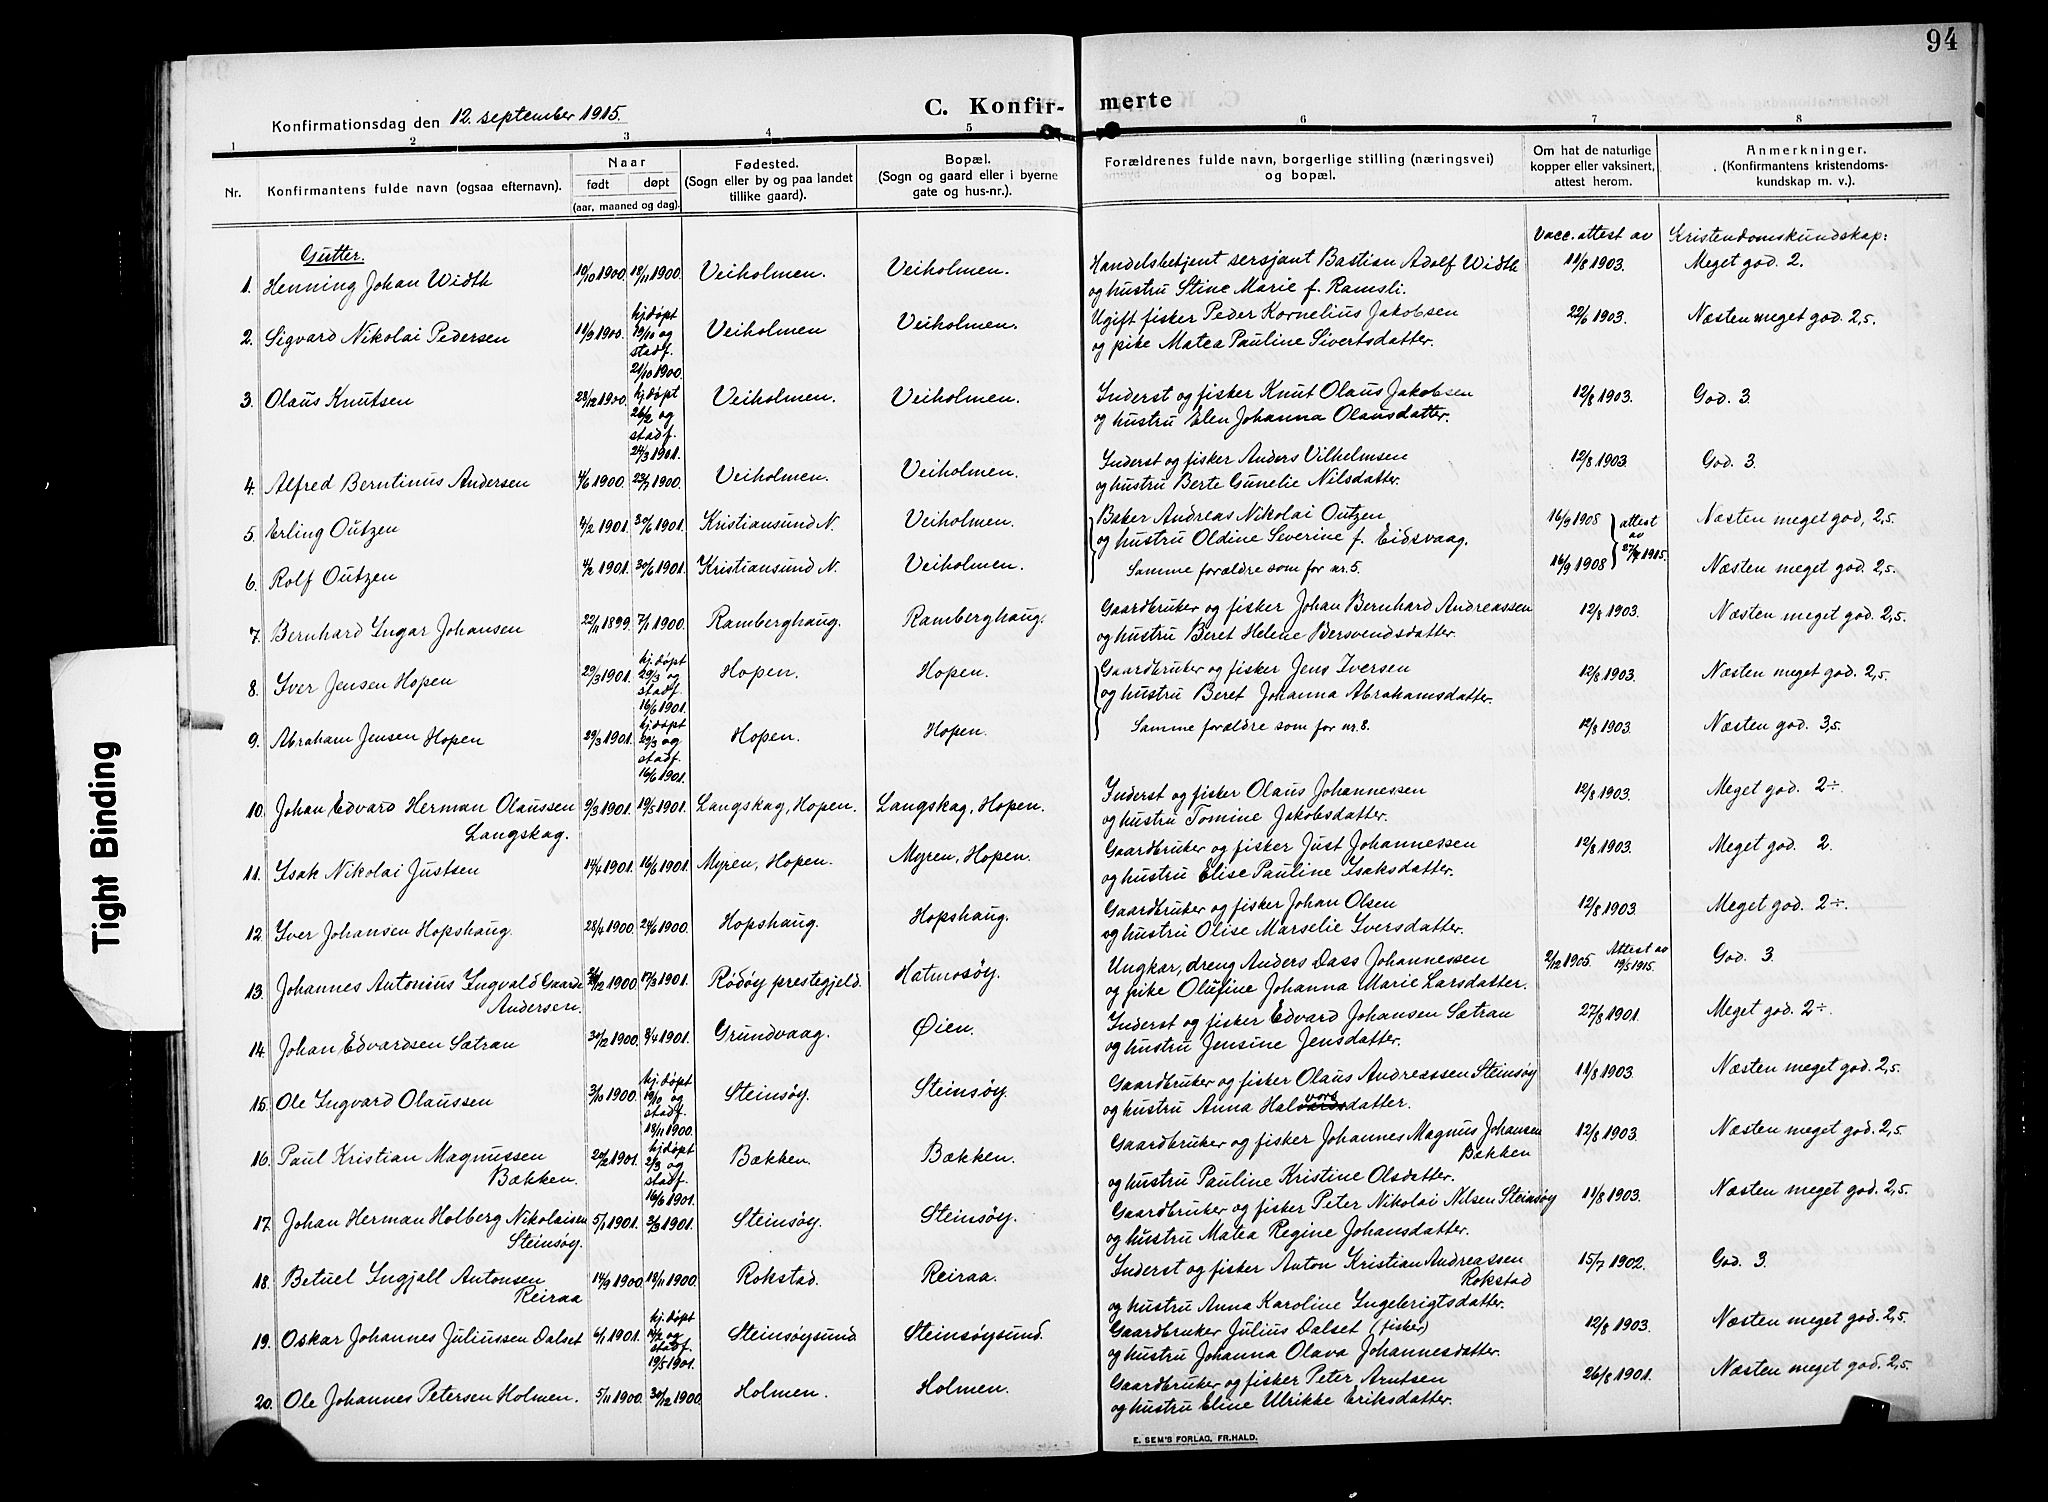 94
C. Konfir- merte
Konfirmationsdag den 12. september 1915.
1 2 3 4 5 6 7 8
Nr. Konfirmantens fulde navn (ogsaa efternavn). Naar født døpt (aar, maaned og dag). Fødested. (Sogn eller by og paa landet tillike gaard). Bopæl. (Sogn og gaard eller i byerne gate og hus-nr.). Forældrenes fulde navn, borgerlige stilling (næringsvei) og bopæl. Om hat de naturlige kopper eller vaksinert, attest herom. Anmerkninger. (Konfirmantens kristendoms- kundskap m. v.).
Gutter. Vacc. attest av Kristendomskundskap:
1. Henning Johan Width 19/10 1900. 18/11 1900. Veiholmen. Veiholmen. Handelsbetjent sersjant Bastian Adolf Width 11/8 1903. Meget god. 2.
og hustru Stine Marie f. Ramsli.
2. Sigvard Nikolai Pedersen 11/9 1900. hj. døpt 19/10 og stadf. 21/10 1900. Veiholmen Veiholmen. Ugift fisker Peder Kornelius Jakobsen 22/6 1903. Næsten meget god. 2,5.
og pike Matea Pauline Sivertsdatter.
3. Olaus Knutsen 28/12 1900. hj. døpt 26/2 og stadf. 24/3 1901. Veiholmen. Veiholmen. Inderst og fisker Knut Olaus Jakobsen 12/8 1903. God. 3.
og hustru Elen Johanna Olausdatter.
4. Alfred Berntinus Andersen 4/6 1900. 23/7 1900. Veiholmen. Veiholmen. Inderst og fisker Anders Vilhelmsen 12/8 1903. God. 3.
og hustru Berte Gunelie Nilsdatter.
5. Erling Outzen 4/2 1901. 30/6 1901. Kristiansund N. Veiholmen. Baker Andreas Nikolai Outzen 16/9 1908 attest av 27/7 1915. Næsten meget god, 2,5.
og hustru Oldine Severine f. Eidsvaag.
6. Rolf Outzen 4/2 1901. 30/6 1901. Kristiansund N. Veiholmen. Samme forældre som for nr. 5. 16/9 1908 Næsten meget god. 2,5.
7. Bernhard Ingar Johansen 22/11 1899. 7/1 1900. Ramberghaug. Ramberghaug. Gaardbruker og fisker Johan Bernhard Andreassen 12/8 1903. Næsten meget god. 2,5.
og hustru Beret Helene Bersvendsdatter.
8. Iver Jensen Hopen 29/3 1901. hj. døpt 29/3 og stadf. 16/6 1901. Hopen. Hopen. Gaardbruker og fisker Jens Iversen 12/8 1903. Næsten meget god. 2,5.
og hustru Beret Johanna Abrahamsdatter.
9. Abraham Jensen Hopen 29/3 1901. hj. døpt 29/3 og stadf. 16/6 1901. Hopen. Hopen. Samme forældre som for nr. 8. 12/8 1903. Næsten god. 3,5.
10. Johan Edvard Herman Olaussen 9/3 1901. 19/5 1901. Langskag, Hopen. Langskag, Hopen. Inderst og fisker Olaus Johannessen 12/8 1903. Meget god. 2÷.
Langskag. og hustru Tomine Jakobsdatter.
11. Isak Nikolai Justsen 14/4 1901. 16/6 1901. Myren, Hopen. Myren, Hopen. Gaardbruker og fisker Just Johannessen 12/8 1903. Meget god. 2.
og hustru Elise Pauline Isaksdatter.
12. Iver Johansen Hopshaug. 28/4 1900. 24/6 1900. Hopshaug. Hopshaug. Gaardbruker og fisker Johan Olsen 12/8 1903. Meget god. 2÷.
og hustru Olise Marselie Iversdatter.
13. Johannes Antonius Ingvald Gaarde 12 1900. 17/3 1901. Rödöy prestegjeld. Hatmosöy. Ungkar, dreng Anders Dass Johannessen 2/12 1905. Attest av 19/5 1915. God. 3.
Andersen. og pike Olufine Johanna Marie Larsdatter.
14. Johan Edvardsen Sætran 30/12 1900. 8/4 1901. Grundvaag. Øien. Inderst og fisker Edvard Johansen Sætran 27/8 1901. Meget god. 2÷.
og hustru Jensine Jensdatter.
15. Ole Ingvard Olaussen 3/10 1900. hj. døpt 19/10 og stadf. 18/11 1900. Steinsöy. Steinsöy. Gaardbruker og fisker Olaus Andreassen Steinsöy 11/8 1903. Næsten meget god. 2,5.
og hustru Anna Halvorsdatter.
16. Paul Kristian Magnussen 20/2 1901. hj. døpt 2/3 og stadf. 16/6 1901. Bækken. Bækken. Gaardbruker og fisker Johannes Magnus Johansen 12/8 1903. Næsten meget god. 2,5.
Bækken. Bækken
og hustru Pauline Kristine Olsdatter.
17. Johan Herman Holberg Nikolaisen 5/1 1901. 3/3 1901. Steinsöy. Steinsöy. Gaardbruker og fisker Peter Nikolai Nilsen Steinsöy 11/8 1903. Næsten meget god. 2,5.
Steinsöy. og hustru Matea Regine Johansdatter.
18. Betuel Ingjall Antonsen 14/9 1900. 18/11 1900. Rokstad. Reiraa. Inderst og fisker Anton Kristian Andreassen 15/7 1902. God. 3.
Reiraa Rokstad
og hustru Anna Karoline Ingebrigtsdatter.
19. Oskar Johannes Juliussen Dalset 6/1 1901. hj. døpt 14/2 og stadf. 19/5 1901. Steinsöysund. Steinsöysund. Gaardbruker Julius Dalset (fisker) 12/8 1903. Næsten meget god. 2,5.
og hustru Johanna Olava Johannesdatter.
20. Ole Johannes Petersen Holmen. 5/11 1900. 30/12 1900. Holmen. Holmen. Gaardbruker og fisker Peter Arntsen 26/8 1901. Næsten meget god. 2,5.
og hustru Eline Ulrikke Eriksdatter.
E. SEM'S FORLAG, FR.HALD.
Tight Binding